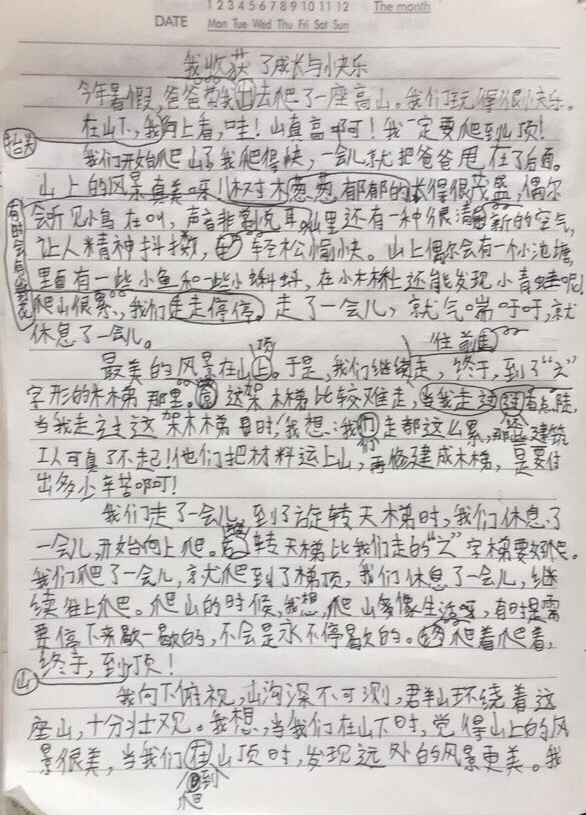 1 2 3 4 5 6 7 8 9 10 11 12 The month
DATE Mon Tue Wed Thu Fri Sat Sun
我收获了成长与快乐
今年暑假,爸爸带我出去爬了一座高山。我们玩得很快乐。
在山下,我向上看,哇!山真高啊!我一定要爬到山顶!
抬头
我们开始爬山了,我爬得快,一会儿就把爸爸甩在了后面。
山上的风景真美呀!树木葱葱郁郁的长得很茂盛,偶尔
会听见小鸟在叫,声音非常悦耳。山里还有一种很清新的空气,
让人精神抖擞,轻松愉快。山上偶尔会有一个小池塘,
里面有一些小鱼和一些小蝌蚪,在小木桥上还能发现小青蛙呢!
爬山很累,我们走走停停。走了一会儿,就气喘吁吁,就
休息了一会儿。
往前
最美的风景在山上。于是,我们继续走,终于,到了“之”
顶
字形的木梯那里。这架木梯比较难走,当我走过有点陡,
当我走过这架木梯时,我想:我们走都这么累,那些建筑
工人可真了不起!他们把材料运上山,再修建成木梯,是要付
出多少辛苦啊!
我们走了一会儿,到了旋转天梯时,我们休息了
一会儿,开始向上爬。转天梯比我们走的“之”字梯要好爬。
我们爬了一会儿,就爬到了梯顶,我们休息了一会儿,继
续往上爬。爬山的时候,我想,爬山多像生活呀,有时是需
要停下来歇一歇的,不会是永不停歇的。爬着爬着,
终于,到顶!
山
我向下俯视,山沟深不可测,群山环绕着这
座山,十分壮观。我想,当我们在山下时,觉得山上的风
景很美,当我们在山顶时,发现远处的风景更美。我
爬到